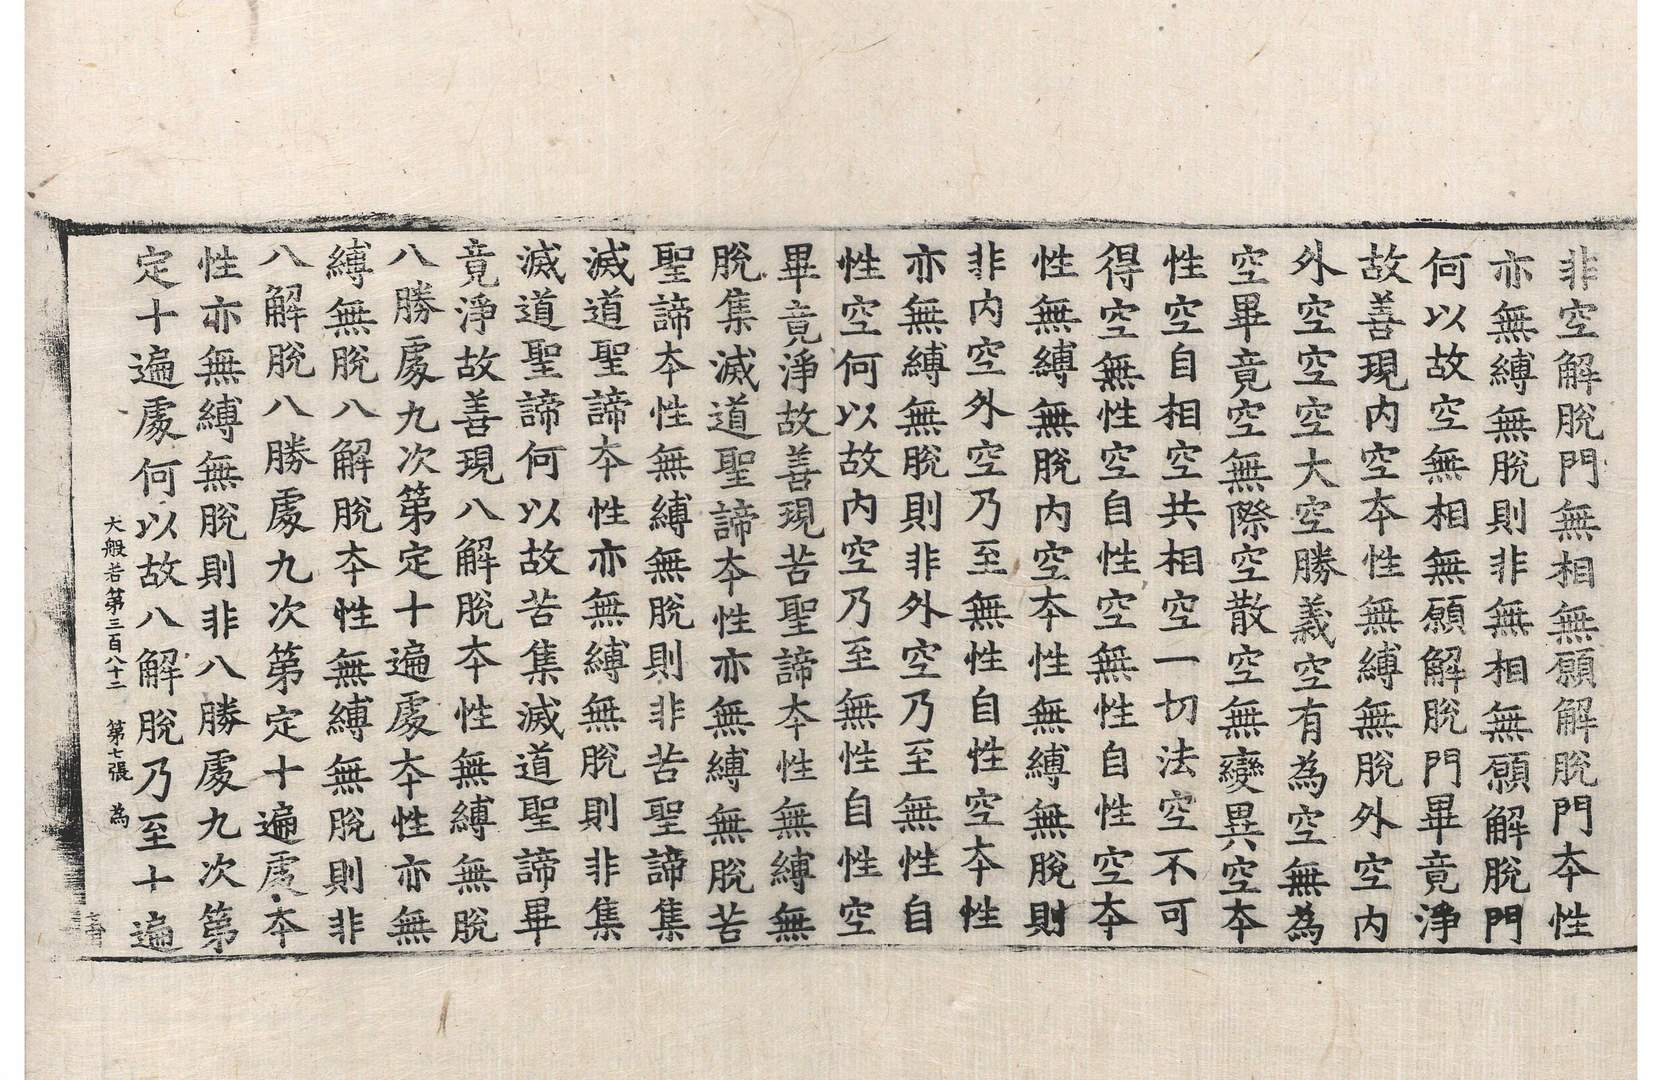 非空解脫門無相無願解脫門本性
亦無縛無脫則非無相無願解脫門
何以故空無相無願解脫門畢竟淨
故善現內空本性無縛無脫外空內
外空空空大空勝義空有為空無為
空畢竟空無際空散空無變異空本
性空自相空共相空一切法空不可
得空無性空自性空無性自性空本
性無縛無脫內空本性無縛無脫則
非內空外空乃至無性自性空本性
亦無縛無脫則非外空乃至無性自
性空何以故內空乃至無性自性空
畢竟淨故善現苦聖諦本性無縛無
脫集滅道聖諦本性亦無縛無脫苦
聖諦本性無縛無脫則非苦聖諦集
滅道聖諦本性亦無縛無脫則非集
滅道聖諦何以故苦集滅道聖諦畢
竟淨故善現八解脫本性無縛無脫
八勝處九次第定十遍處本性亦無
縛無脫八解脫本性無縛無脫則非
八解脫八勝處九次第定十遍處本
性亦無縛無脫則非八勝處九次第
定十遍處何以故八解脫乃至十遍
大般若第三百八十二 第七張 為